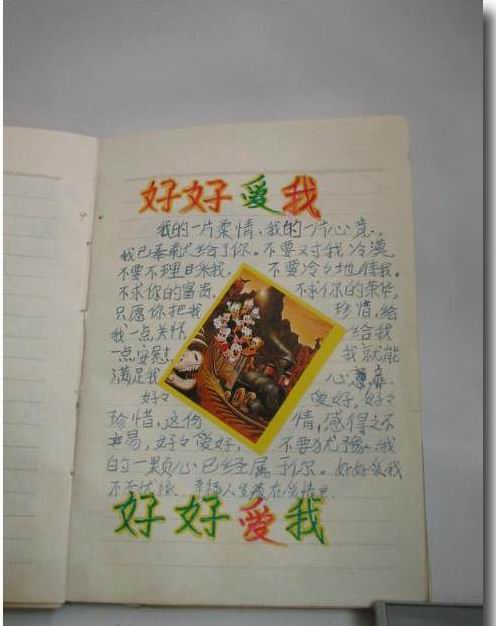 好好爱我
我的一片柔情,我的一片心意,
我已奉献给了你。不要对我冷漠,
不要不理目来我。 不要冷冷地待我。
不求你的富贵, 不求你的荣华,
只愿你把我 珍惜,给
我一点关情 给我
一点安慰 我就能
满足我 心
好々 爱好,好々
珍惜,这份 情,感得之不
易,好々爱好, 不要犹豫。我
的一颗心已经属于你。好好爱我
幸福人生
好好爱我